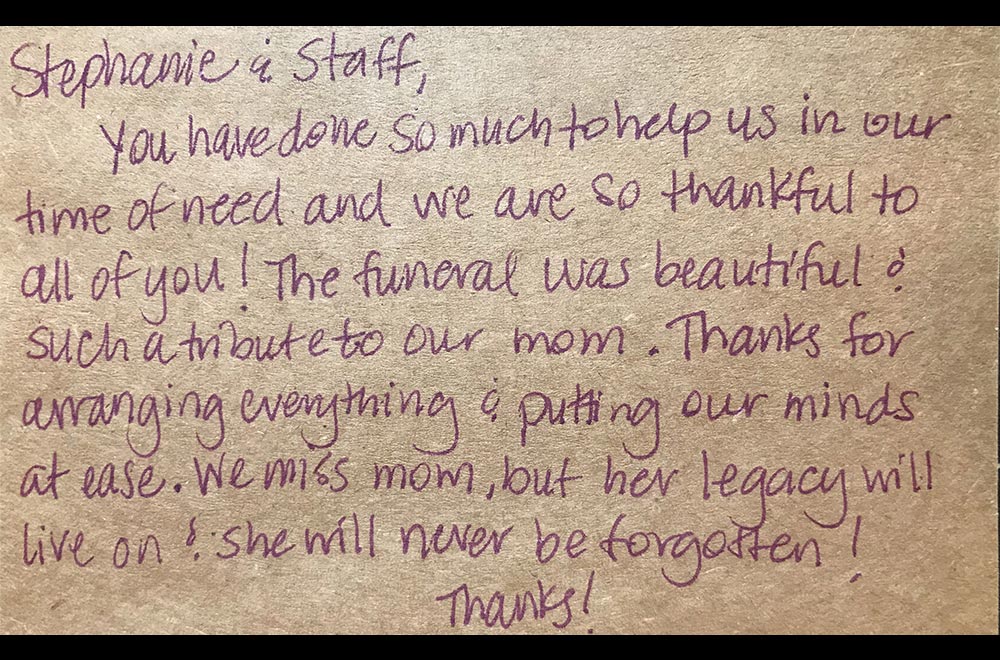 Stephanie & Staff,
You have done so much to help us in our
time of need and we are so thankful to
all of you! The funeral was beautiful &
such a tribute to our mom. Thanks for
arranging everything & putting our minds
at ease. We miss mom, but her legacy will
live on & she will never be forgotten!
Thanks!